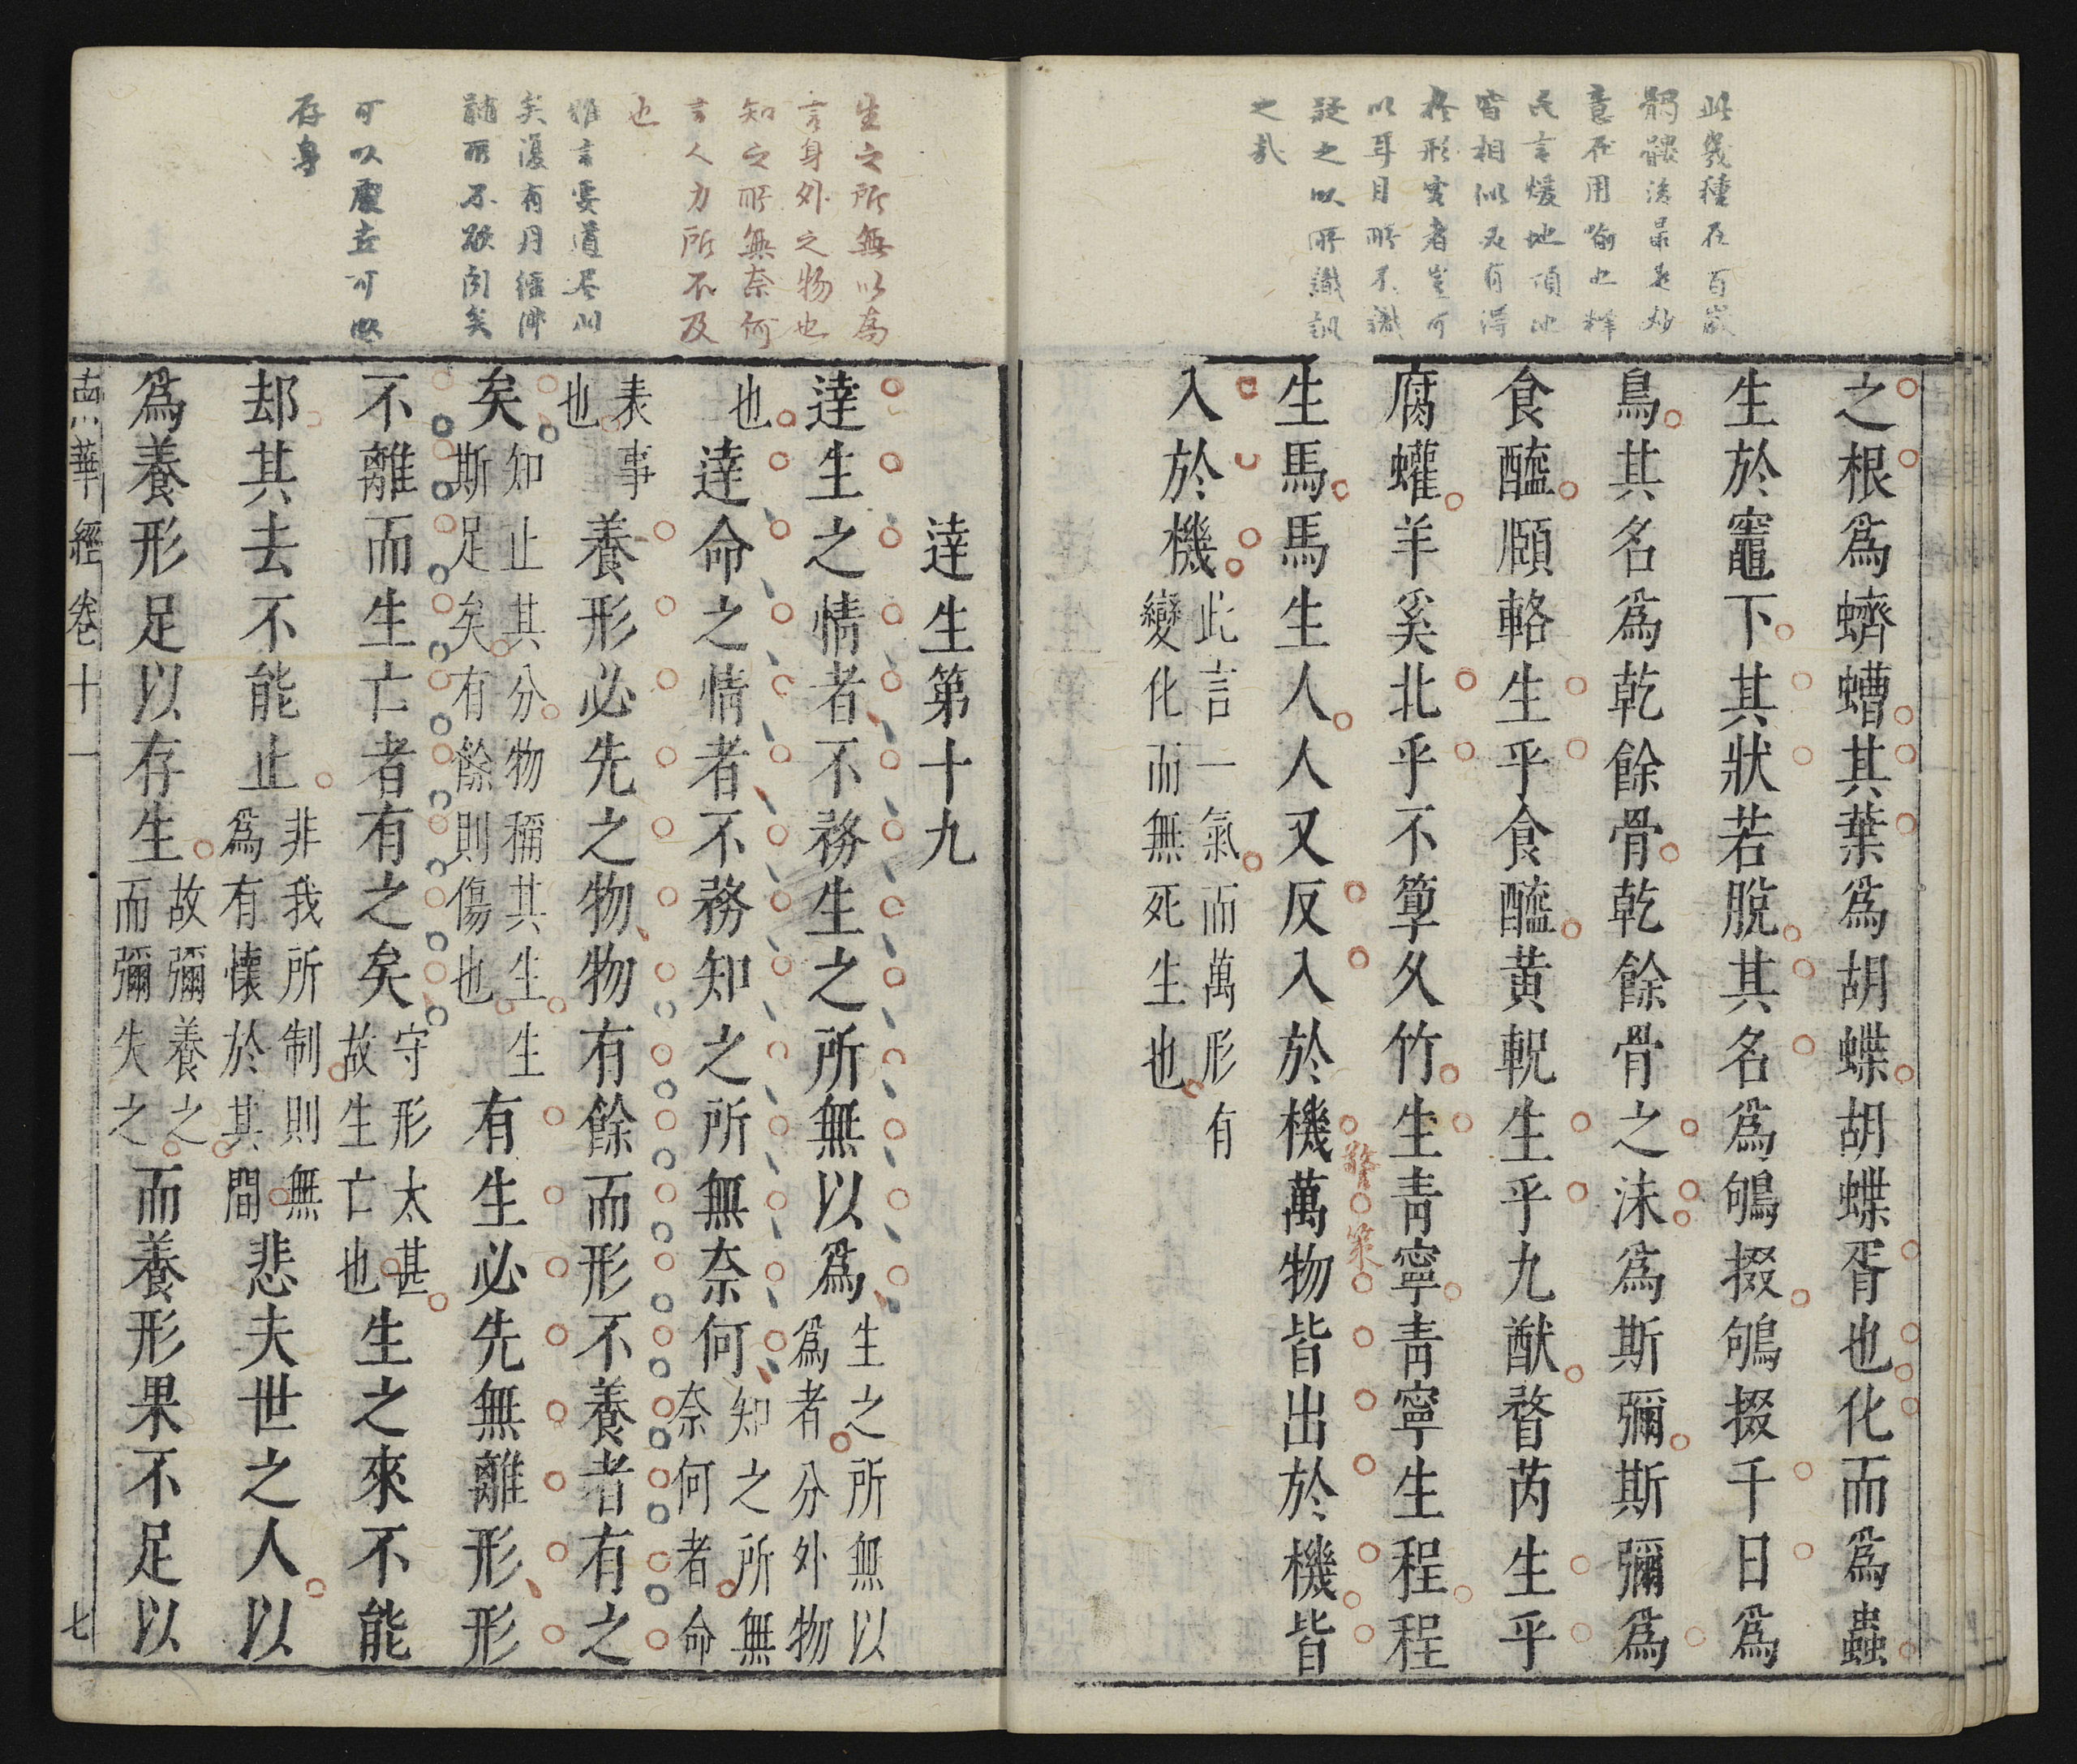 此幾種在百歲
髑髏後最是妙
意在用喻也釋
氏言煖地頂地
皆相似又有得
於形實者豈可
以耳目所不識
疑之以所識訊
之哉
之根爲蠐螬其葉爲胡蝶胡蝶胥也化而爲蟲
生於竈下其狀若脫其名爲鴝掇鴝掇千日爲
鳥其名爲乾餘骨乾餘骨之沬爲斯彌斯彌爲
食醯頤輅生乎食醯黃軦生乎九猷瞀芮生乎
腐蠸羊奚比乎不箰久竹生青寧青寧生程程
生馬馬生人人又反入於機萬物皆出於機皆
警策
入於機
此言一氣而萬形有
變化而無死生也
生之所無以爲
言身外之物也
知之所無奈何
言人力所不及
也
矣復有月經
可以處玄可以
存身
達生第十九
達生之情者不務生之所無以爲
生之所無以
爲者分外物
也
達命之情者不務知之所無奈何
知之所無
奈何者命
表事
也
養形必先之物物有餘而形不養者有之
矣
知止其分物稱其生生
斯足矣有餘則傷也
有生必先無離形形
不離而生亡者有之矣
守形太甚
故生亡也
生之來不能
却其去不能止
非我所制則無
爲有懷於其間
悲夫世之人以
爲養形足以存生
故彌養之
而彌失之
而養形果不足以
南華經卷十一
七